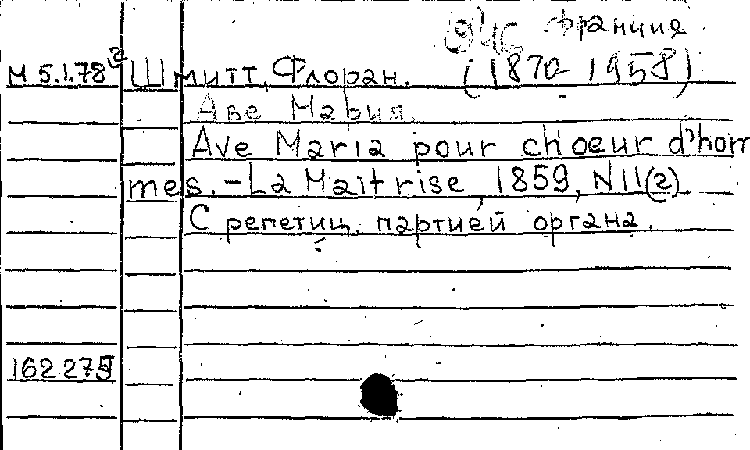 Франция
М 5.1.78 Шмитт, Флоран. (1870-1958)
Аве Мария.
Ave Maria pour choeur d'hom
mes. - La Maitrise, 1859, N11(2)
С репетиц. партией органа.
162275